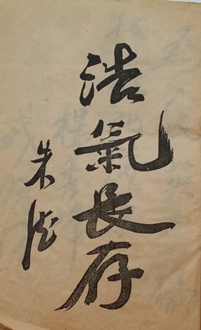 浩氣長存
朱德